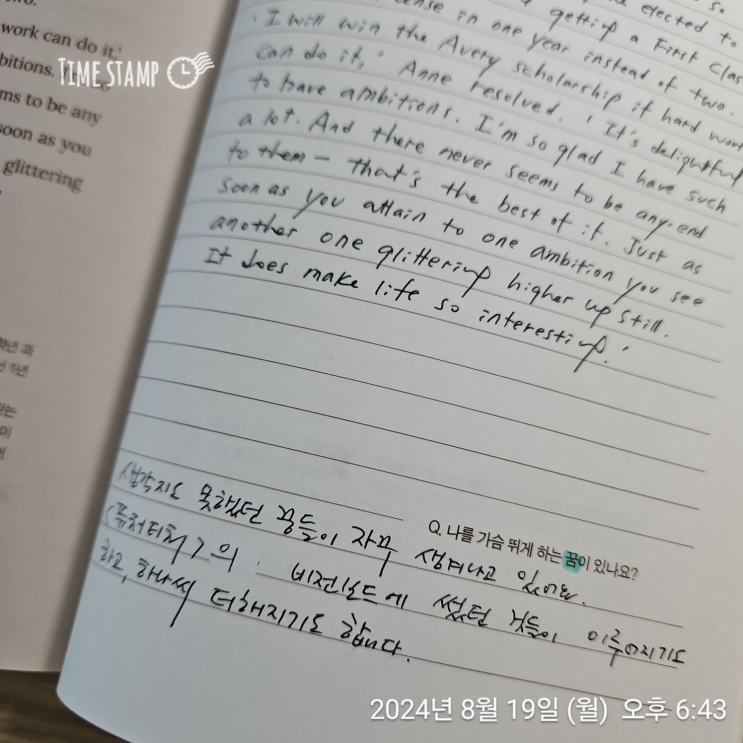 work can do it,'
bitions.
ms to be any
soon as you
glittering
TIMESTAMP
elected to
in one year instead of two.
getting a First Clas
'I will win the Avery scholarship if hard work
can do it,' Anne resolved. 'It's delightful
to have ambitions. I'm so glad I have such
a lot. And there never seems to be any end
to them — that's the best of it. Just as
soon as you attain to one ambition you see
another one glittering higher up still.
It does make life so interesting.'
Q. 나를 가슴 뛰게 하는 꿈이 있나요?
생각지도 못했던 꿈들이 자꾸 생겨나고 있어요.
<퓨처티처>의 비전보드에 썼던 것들이 이루어지기도
하고, 하나씩 더해지기도 합니다.
2024년 8월 19일 (월) 오후 6:43